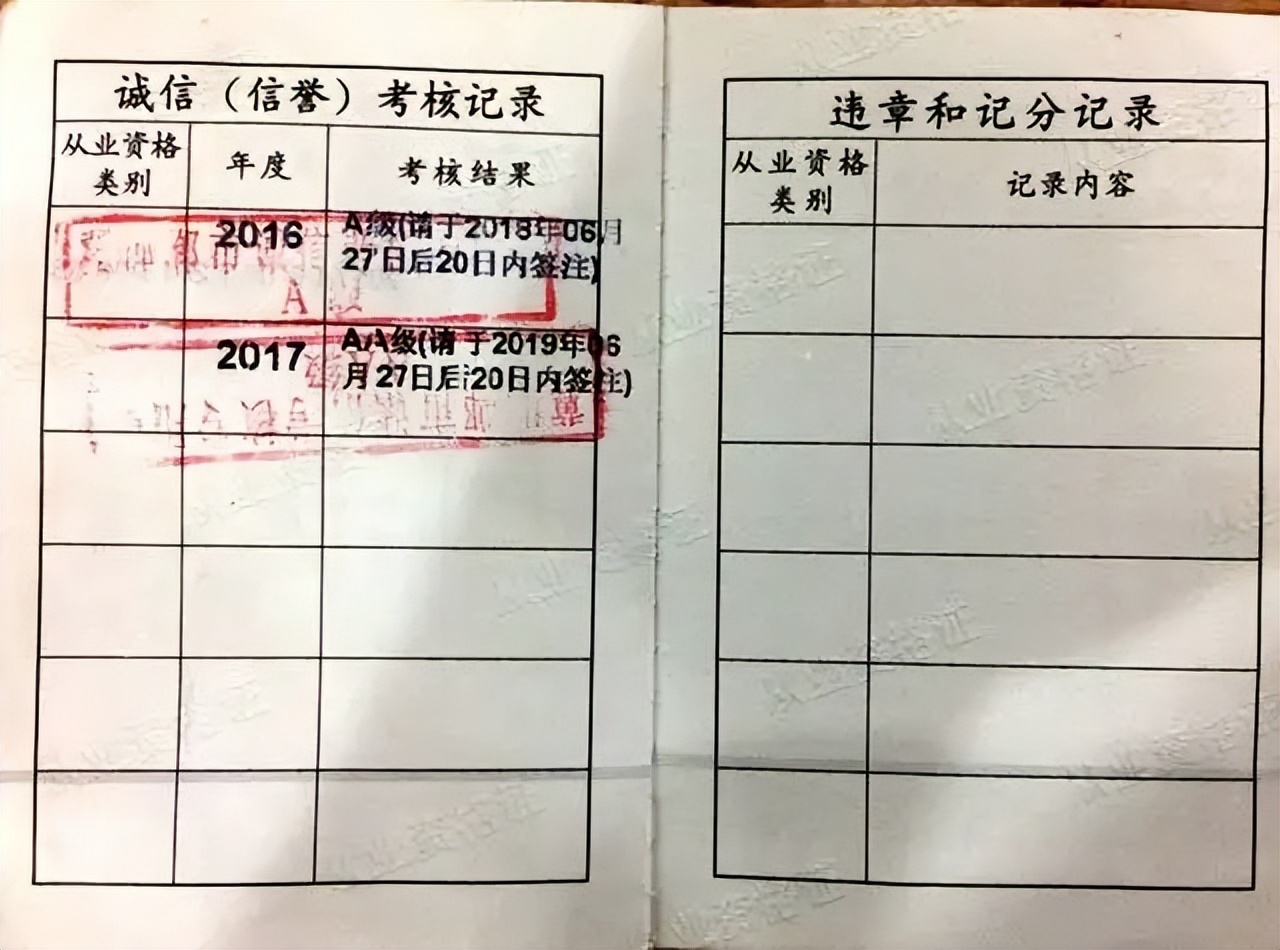 诚信（信誉）考核记录
从业资格
类别
年度
考核结果
2016
A级(请于2018年06月
27日后20日内签注)
A
2017
AA级(请于2019年06
月27日后20日内签注)
违章和记分记录
从业资格
类别
记录内容
从业资格证